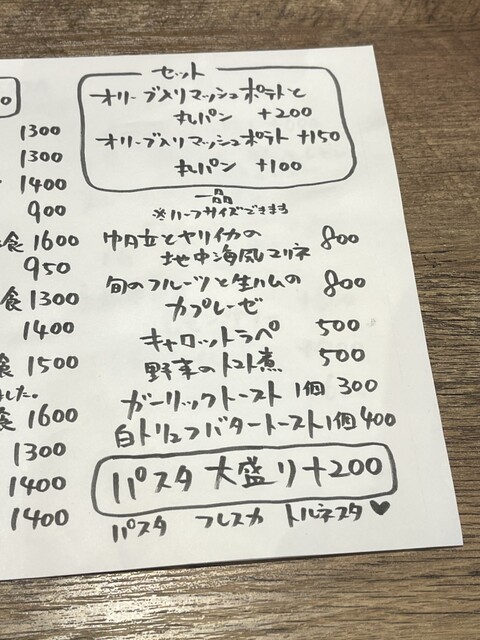 1300
1300
1400
900
食 1600
950
食 1300
1400
食 1500
ました。
食 1600
1300
1400
1400
セット
オリーブ入りマッシュポテトと
丸パン +200
オリーブ入りマッシュポテト +150
丸パン +100
一品
※ハーフサイズできます
帆立とヤリイカの
地中海風マリネ 800
旬のフルーツと生ハムの
カプレーゼ 800
キャロットラペ 500
野菜のトマト煮 500
ガーリックトースト 1個 300
白トリュフバタートースト1個 400
パスタ 大盛り+200
パスタ フレスカ トルネスタ♥